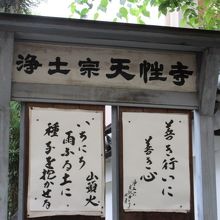 浄土宗天性寺
善き行いに
善き心
いちにち
雨ふる土に
種子を抱かせる
山頭火